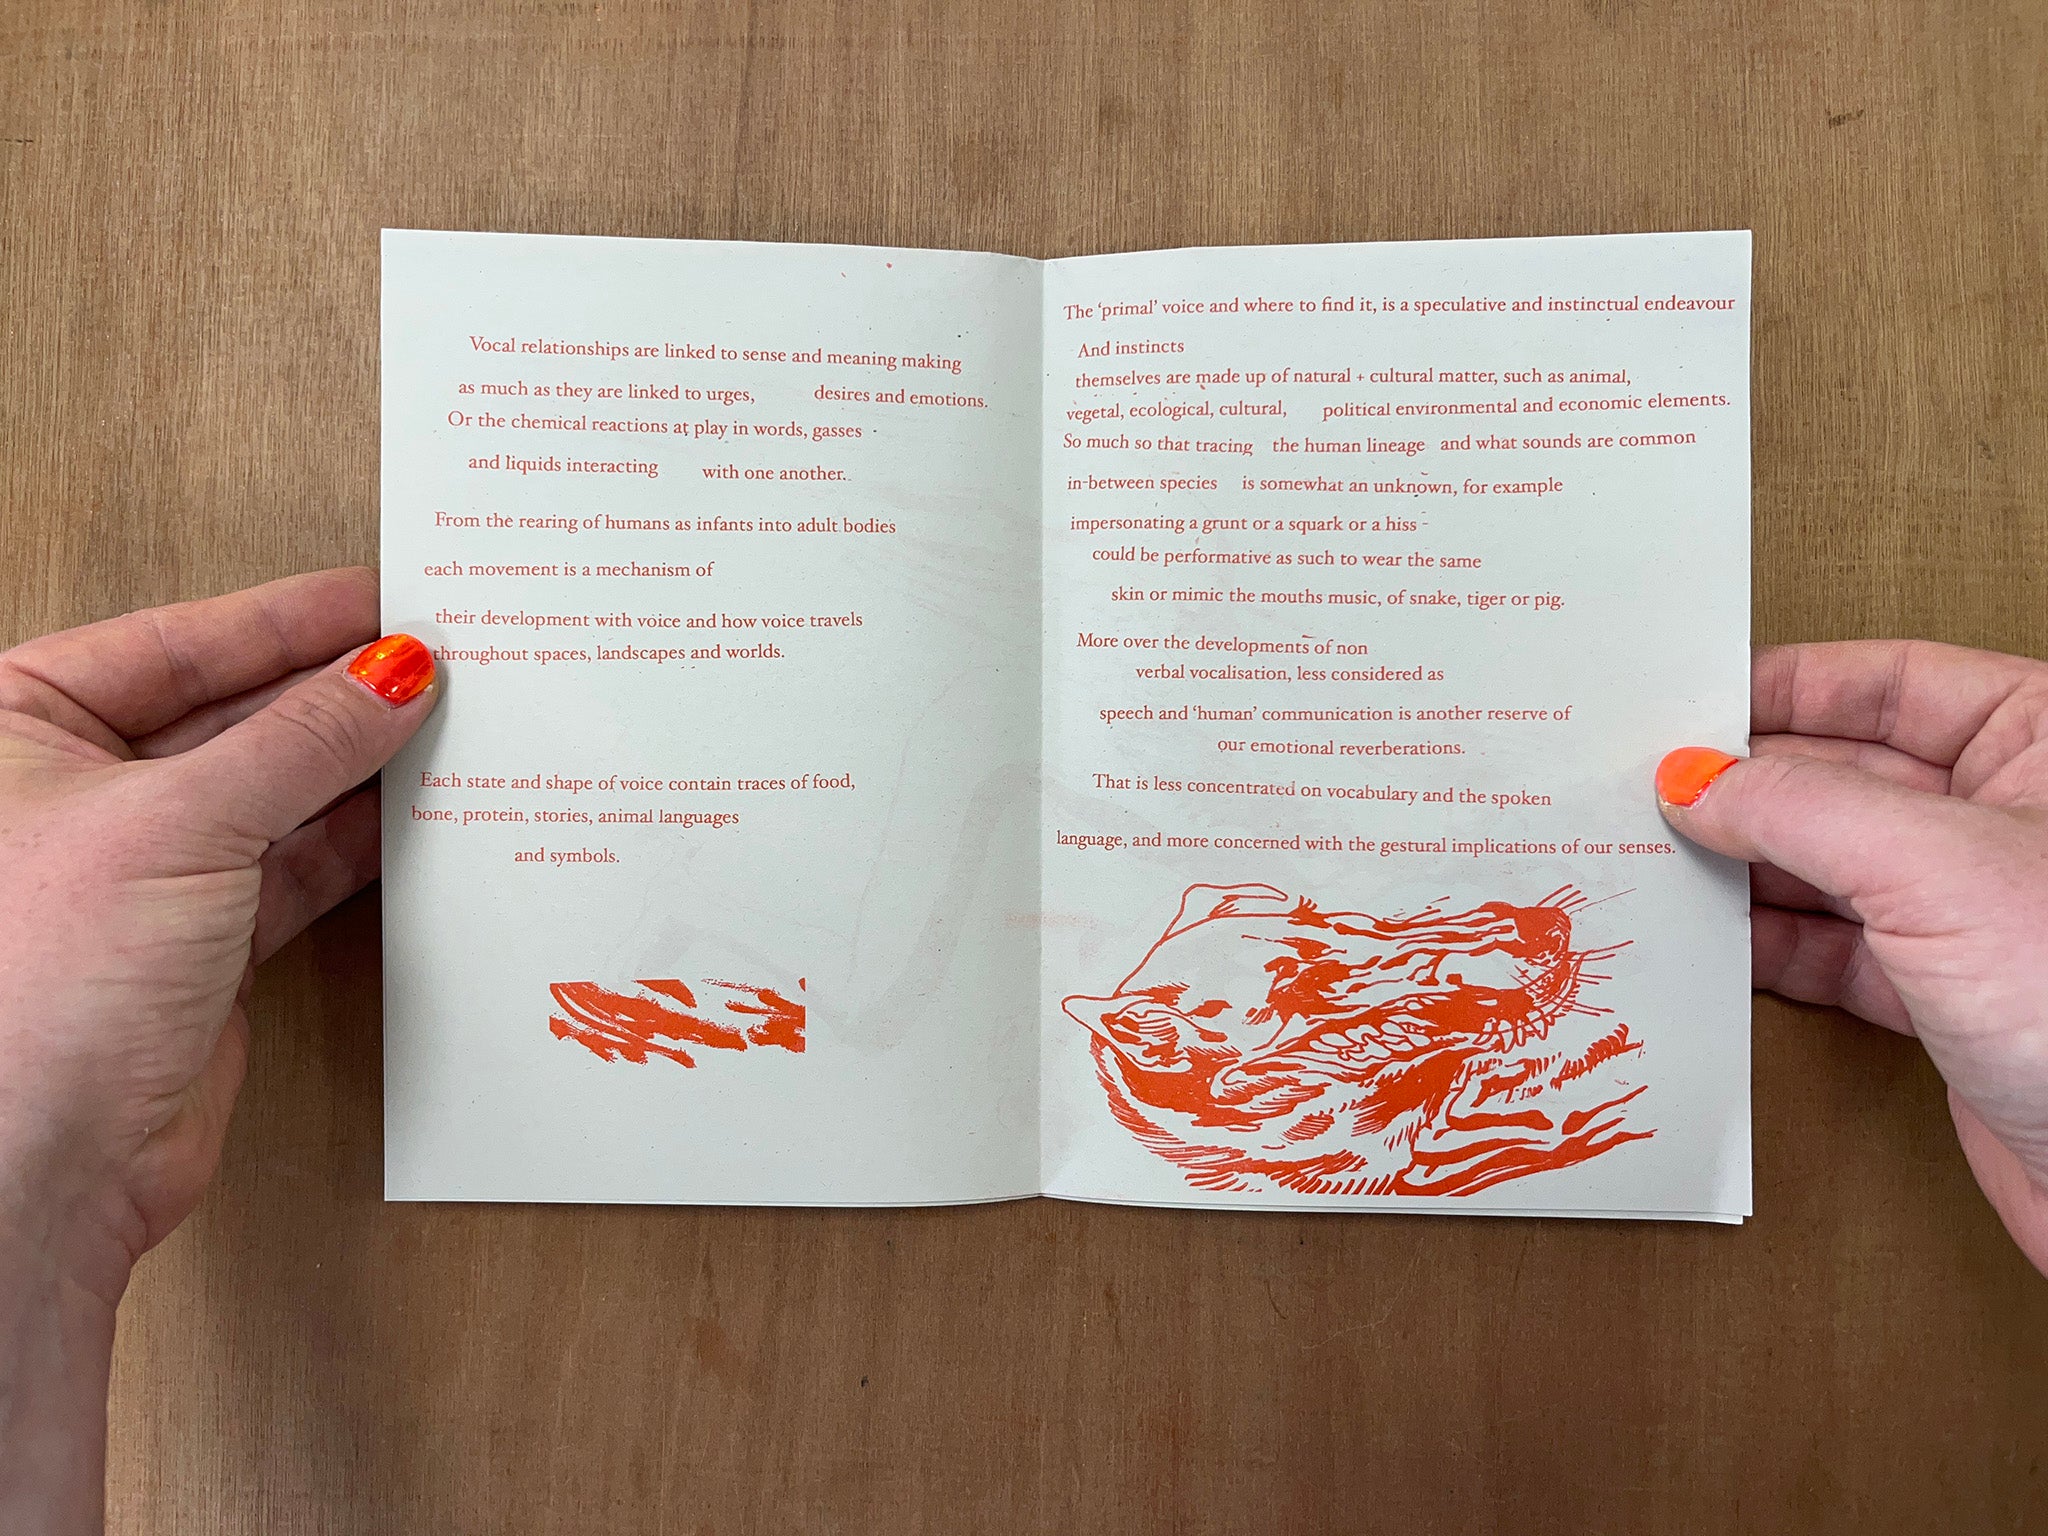 Vocal relationships are linked to sense and meaning making
as much as they are linked to urges, desires and emotions.
Or the chemical reactions at play in words, gasses
and liquids interacting with one another.
From the rearing of humans as infants into adult bodies
each movement is a mechanism of
their development with voice and how voice travels
throughout spaces, landscapes and worlds.
Each state and shape of voice contain traces of food,
bone, protein, stories, animal languages
and symbols.
The ‘primal’ voice and where to find it, is a speculative and instinctual endeavour
And instincts
themselves are made up of natural + cultural matter, such as animal,
vegetal, ecological, cultural, political environmental and economic elements.
So much so that tracing the human lineage and what sounds are common
in-between species is somewhat an unknown, for example
impersonating a grunt or a squark or a hiss -
could be performative as such to wear the same
skin or mimic the mouths music, of snake, tiger or pig.
More over the developments of non
verbal vocalisation, less considered as
speech and ‘human’ communication is another reserve of
our emotional reverberations.
That is less concentrated on vocabulary and the spoken
language, and more concerned with the gestural implications of our senses.